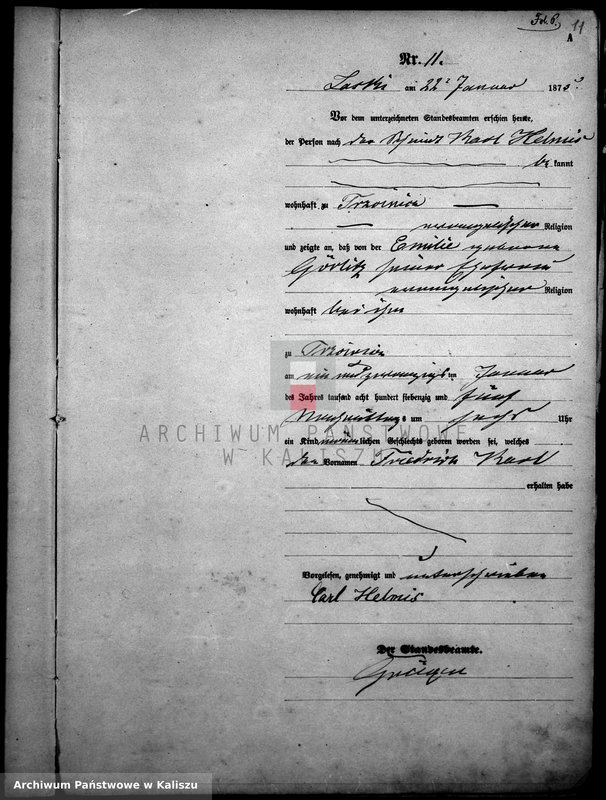 Fol. 6.
11
A
Nr. 11.
Laski am 22t Januar 1875
Vor dem unterzeichneten Standesbeamten erschien heute,
der Person nach der Karl Helmis
be kannt
wohnhaft zu
evangelischer Religion
und zeigte an, daß von der Emilie geborene
Görlitz seiner Ehefrau
evangelischer Religion
wohnhaft bei ihm
zu
am ein und zwanzigsten Januar
des Jahres tausend acht hundert siebenzig und fünf
Nachmittags um sechs Uhr
ein Kind männlichen Geschlechts geboren worden sei, welches
den Vornamen Friedrich Karl
erhalten habe
Vorgelesen, genehmigt und unterschrieben
Carl Helmis
Der Standesbeamte.
ARCHIWUM PAŃSTWOWE
W KALISZU
Archiwum Państwowe w Kaliszu